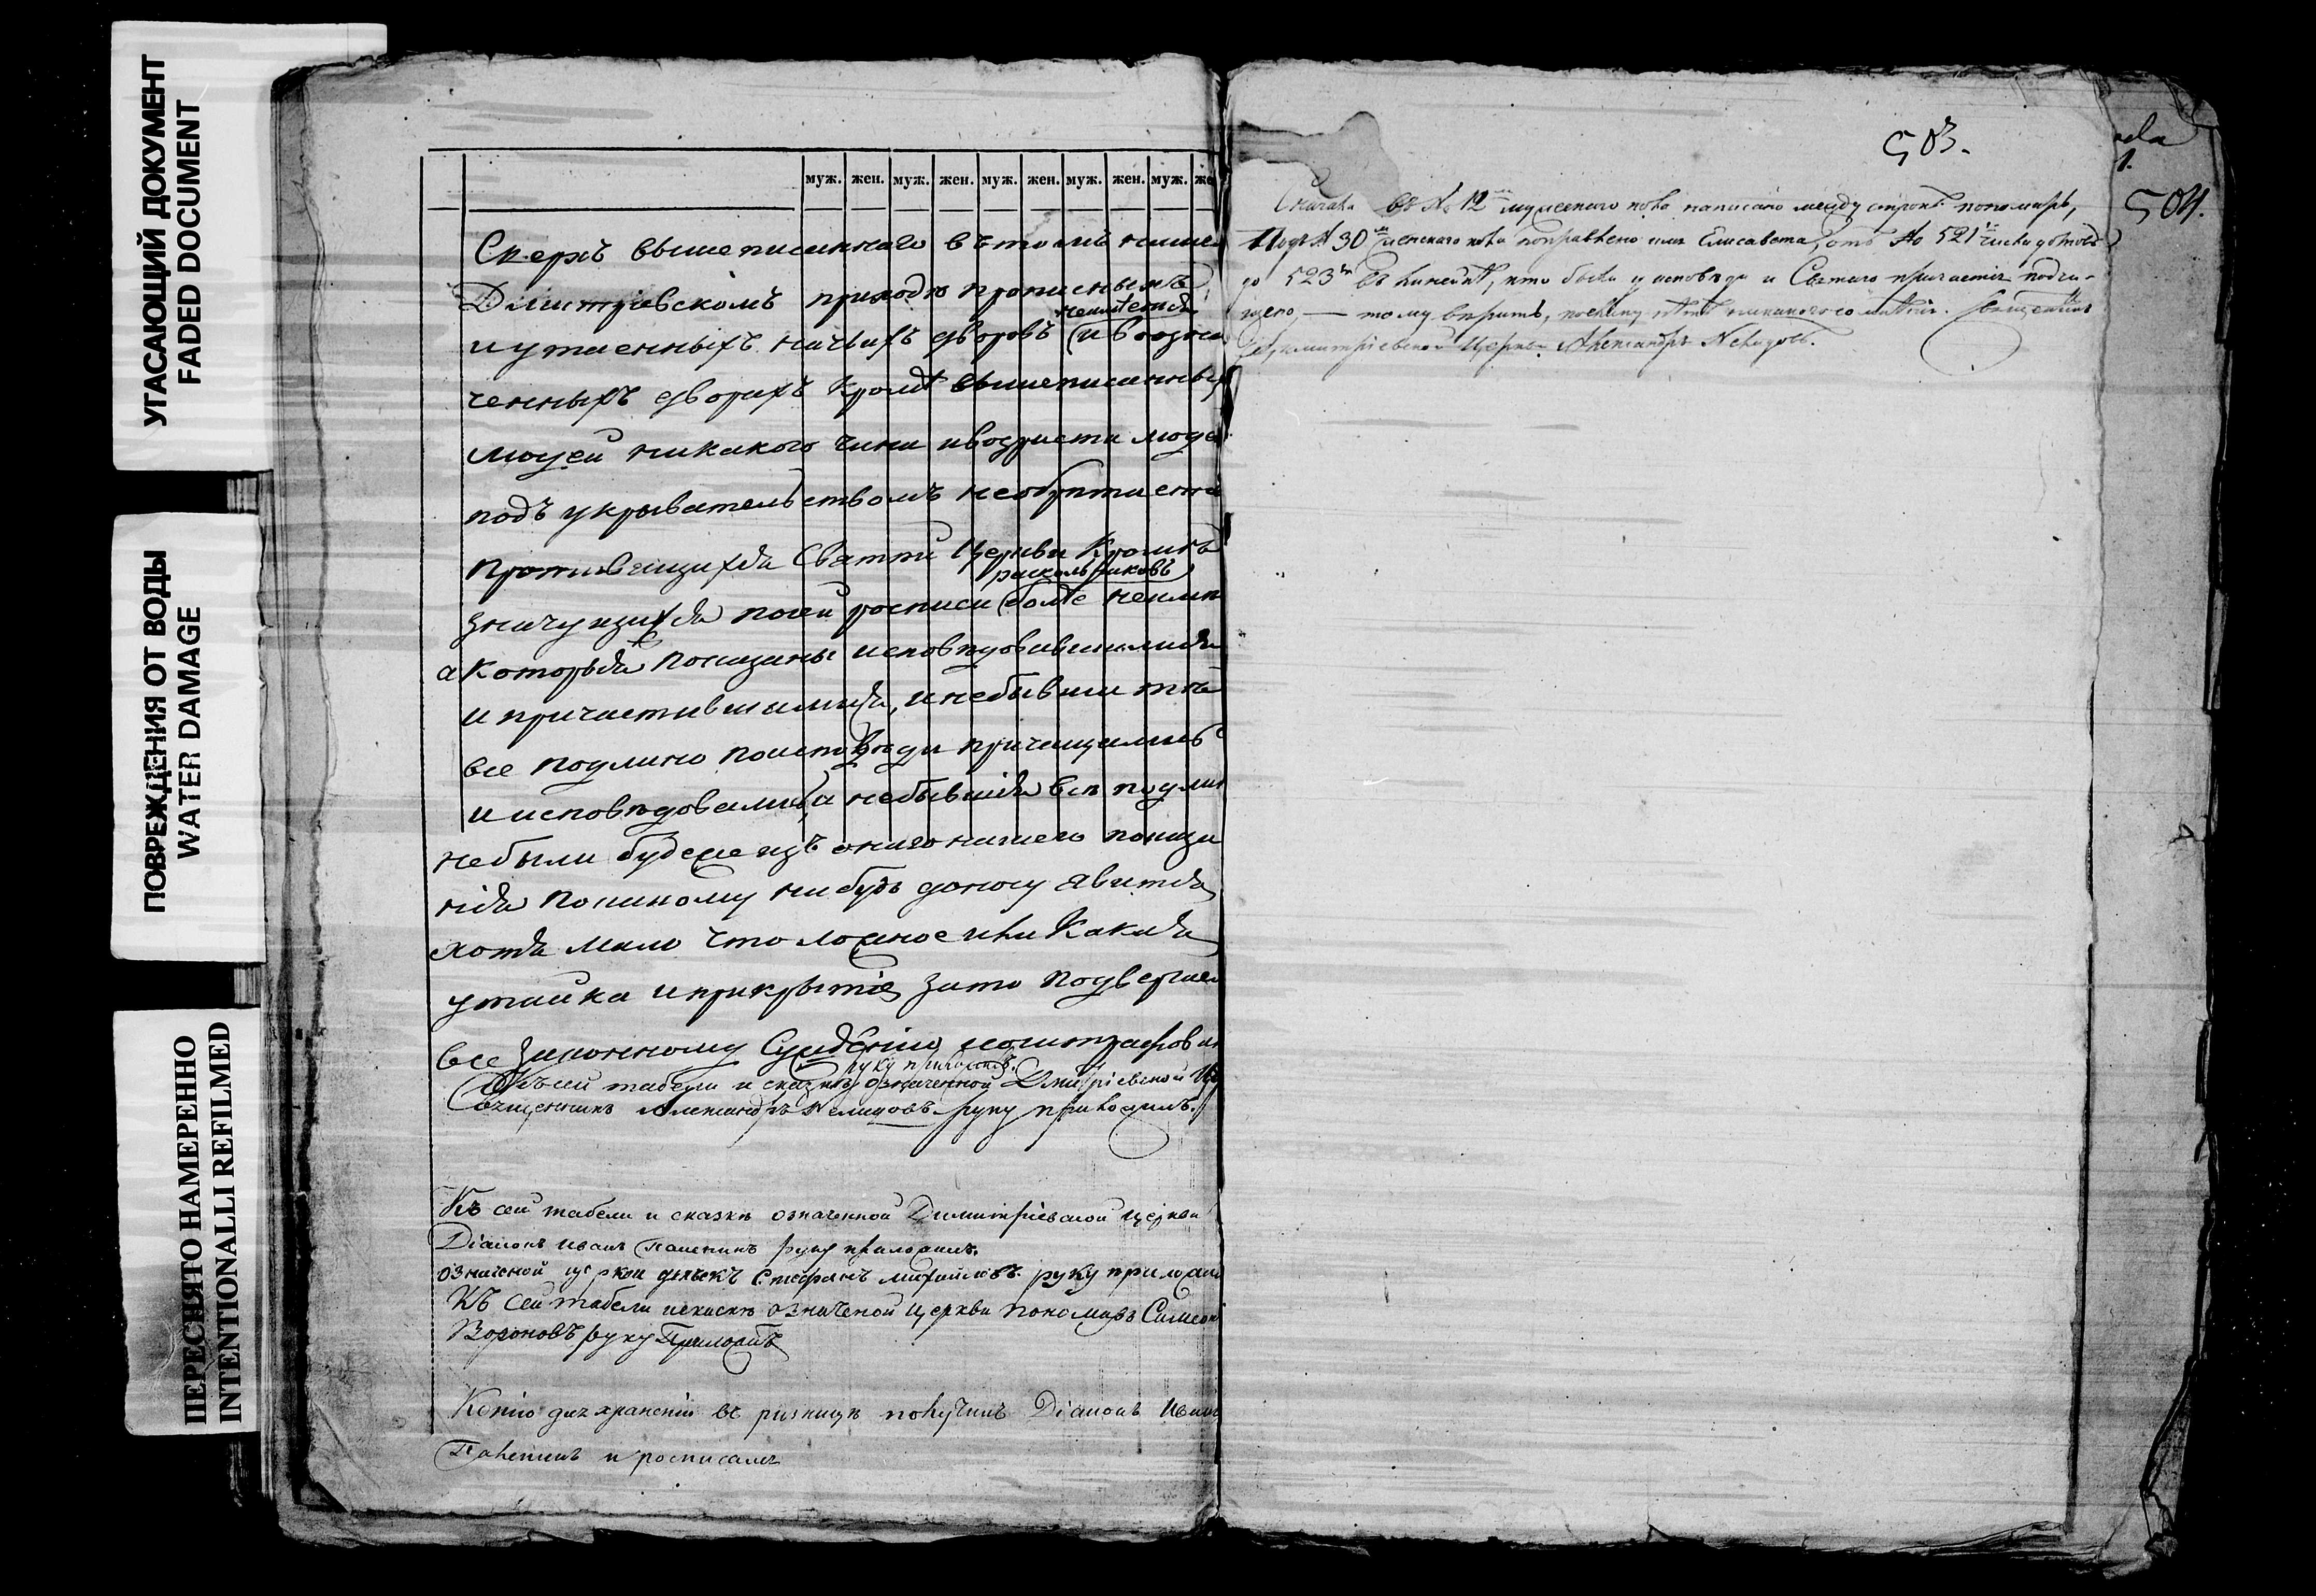 УГАСАЮЩИЙ ДОКУМЕНТ
FADED DOCUMENT
ПОВРЕЖДЕНИЯ ОТ ВОДЫ
WATER DAMAGE
ПЕРЕСНЯТО НАМЕРЕННО
INTENTIONALLI REFILMED
муж. жен. муж. жен. муж. жен. муж. жен. муж. же
Сверхъ вышеписаннаго вътомъ нашем
Дмитріевскомъ приходѣ прописныхъ
неимѣется
иутаенныхъ ничьихъ дворовъ (ивозна
ченныхъ дворахъ Кромѣ вышеписанны
людей никакого чина ивозраста люде
подъ укрывательствомъ необрѣтается
Противящихся Святѣй Церкви Кромѣ
раскольниковъ
значущихся посей росписи (болѣе неимѣ
а которыя Показаны исповѣдовавшимися
и причастившимися, инебывши тѣ
все подлино поисповѣди причащались
и исповѣдовались, а небывшія всѣ подлин
небыли будеже изъ онаго нашего показа
нія Покакому нибудь доносу явится
хотя мало что ложное или Какая
утайка иприкрытіе зато подвергае
все законному Сужденію, иоштрафован
руку приложилъ.
Къ сей табели и сказкѣ означенной Дмитріевской Це
Священникъ Александръ Нелидовъ руку приложилъ.
Къ сей табели и сказкѣ означенной Димитріевской церкви
Діаконъ Иванъ Палекинъ руку приложилъ.
означеной церкви дьячекъ Стефанъ михайловъ руку приложи
Къ сей табели искаскѣ означеной церкви пономарь Симеон
Вороновъ руку Приложилъ
Копію для храненія въ ризницѣ получилъ Діаконъ Иван
Палекинъ и росписался
503.
въ № 12 мужескаго пола написано между строкъ пономарь,
Подъ № 30 женскаго пола поправлено имя Елисавета, отъ № 521 числа
до 523 въ линейкѣ, что были у исповѣди и Святаго причастія подчи-
щено, — тому вѣрить, поелику нѣтъ никакого Священникъ
Димитріевской Церкви Александръ Нелидовъ.
1.
504.